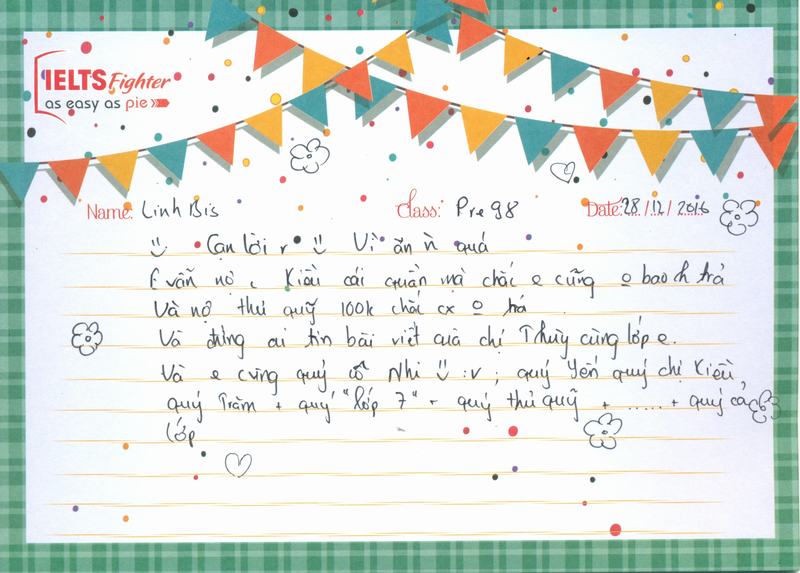 IELTS Fighter
as easy as pie
Name: Linh Bis Class: Pre 98 Date: 28/12/2016
Cạn lời r Vì ăn n quá
E vẫn nợ c Kiều cái quần mà chắc e cũng o bao h trả
Và nợ thủ quỹ 100k chắc cx o trả
Và đừng ai tin bài viết của chị Thùy cùng lớp e.
Và e cũng quý cô Nhi :v ; quý Yến quý chị Kiều,
quý Trâm + quý "lớp 7" + quý thủ quỹ + ..... + quý cả
lớp